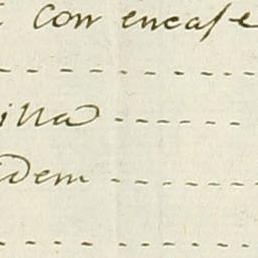 con encase
illa
dem